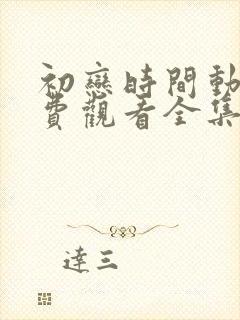 初戀時間動
費觀看全集
達三